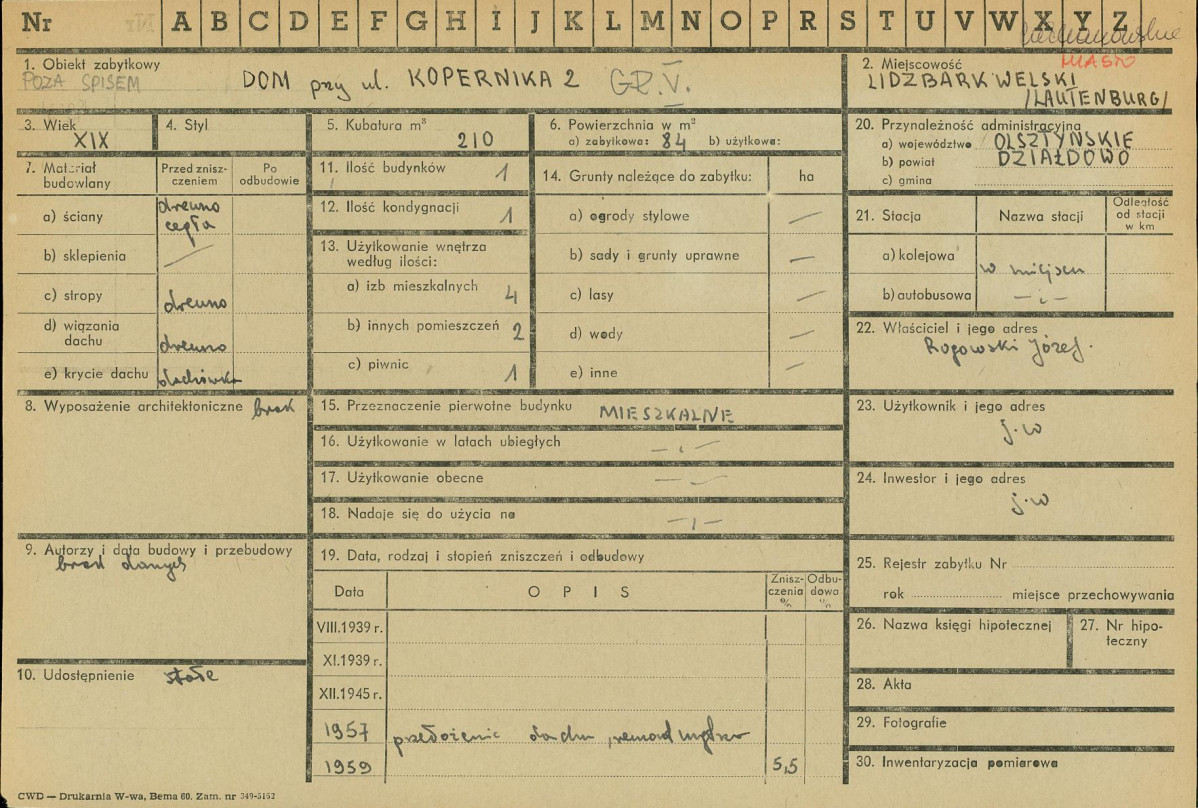 Nr A B C D E F G H I J K L M N O P R S T U V W X Y Z
1. Obiekt zabytkowy
POZA SPISEM
DOM przy ul. KOPERNIKA 2 GR.V.
2. Miejscowość MIASTO
LIDZBARK WELSKI
/LAUTENBURG/
3. Wiek
XIX
4. Styl
5. Kubatura m³
210
6. Powierzchnia w m²
a) zabytkowa: 84 b) użytkowa:
20. Przynależność administracyjna
a) województwo OLSZTYŃSKIE
b) powiat DZIAŁDOWO
c) gmina
7. Materiał budowlany
Przed zniszczeniem
Po odbudowie
a) ściany drewno cegła
b) sklepienia —
c) stropy drewno
d) wiązania dachu drewno
e) krycie dachu dachówka
11. Ilość budynków 1
12. Ilość kondygnacji 1
13. Użytkowanie wnętrza według ilości:
a) izb mieszkalnych 4
b) innych pomieszczeń 2
c) piwnic 1
14. Grunty należące do zabytku: ha
a) ogrody stylowe —
b) sady i grunty uprawne —
c) lasy —
d) wody —
e) inne —
21. Stacja
Nazwa stacji
Odległość od stacji w km
a) kolejowa w miejscu
b) autobusowa —„—
22. Właściciel i jego adres
Rogowski Józef.
8. Wyposażenie architektoniczne brak
15. Przeznaczenie pierwotne budynku MIESZKALNE
16. Użytkowanie w latach ubiegłych —„—
17. Użytkowanie obecne —„—
18. Nadaje się do użycia na —„—
23. Użytkownik i jego adres
j.w
24. Inwestor i jego adres
j.w
9. Autorzy i data budowy i przebudowy
brak danych
19. Data, rodzaj i stopień zniszczeń i odbudowy
Data
OPIS
Zniszczenia %
Odbudowa %
VIII.1939 r.
XI.1939 r.
XII.1945 r.
1957 przełożenie dachu, remont
1959 5,5
10. Udostępnienie stałe
25. Rejestr zabytku Nr
rok miejsce przechowywania
26. Nazwa księgi hipotecznej
27. Nr hipoteczny
28. Akta
29. Fotografie
30. Inwentaryzacja pomiarowa
CWD — Drukarnia W-wa, Bema 60. Zam. nr 349-5162